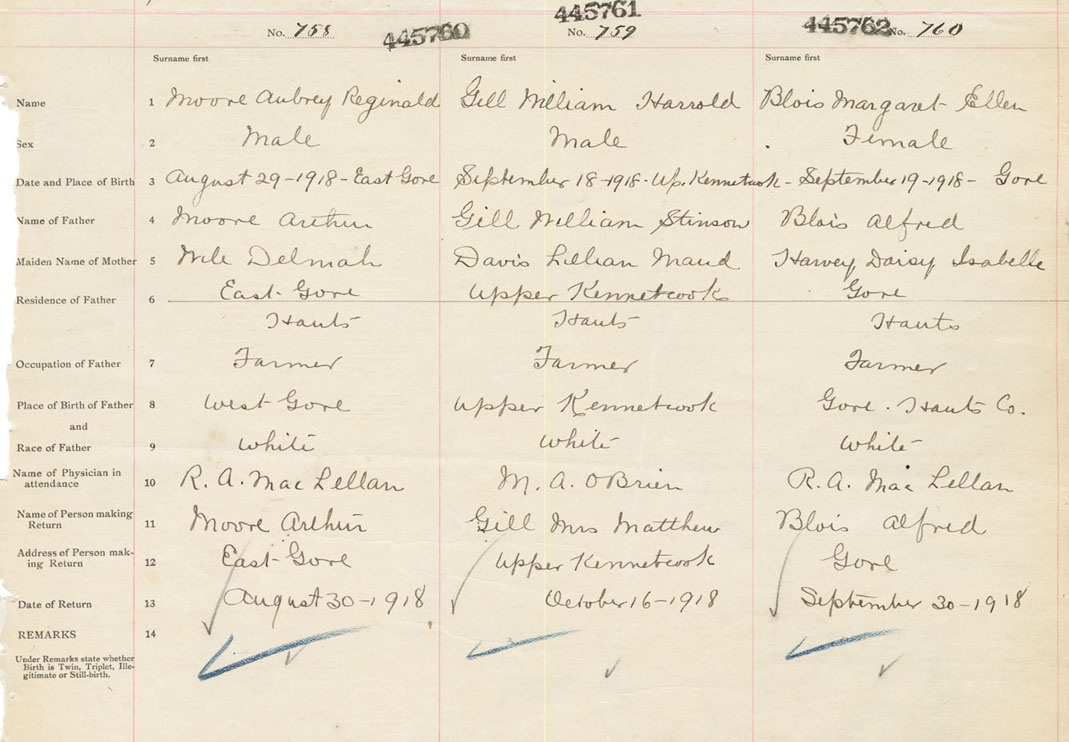 445760 445761 445762
No. 758 No. 759 No. 760
Surname first Surname first Surname first
Name 1 Moore Aubrey Reginald Gill William Harrold Blois Margaret Ellen
Sex 2 Male Male Female
Date and Place of Birth 3 August 29-1918-East Gore September 18-1918-Up. Kennetcook- September 19-1918- Gore
Name of Father 4 Moore Arthur Gill William Stinson Blois Alfred
Maiden Name of Mother 5 Delmah Davis Lillian Maud Harvey Daisy Isabelle
Residence of Father 6 East Gore Upper Kennetcook Gore
Hants Hants Hants
Occupation of Father 7 Farmer Farmer Farmer
Place of Birth of Father 8 West Gore Upper Kennetcook Gore. Hants Co.
and
Race of Father 9 White White White
Name of Physician in
attendance 10 R. A. Mac Lellan M. A. O'Brien R. A. Mac Lellan
Name of Person making
Return 11 Moore Arthur Gill Mrs Matthew Blois Alfred
Address of Person mak-
ing Return 12 East Gore Upper Kennetcook Gore
Date of Return 13 August 30-1918 October 16-1918 September 30-1918
REMARKS 14
Under Remarks state whether
Birth is Twin, Triplet, Ille-
gitimate or Still-birth.